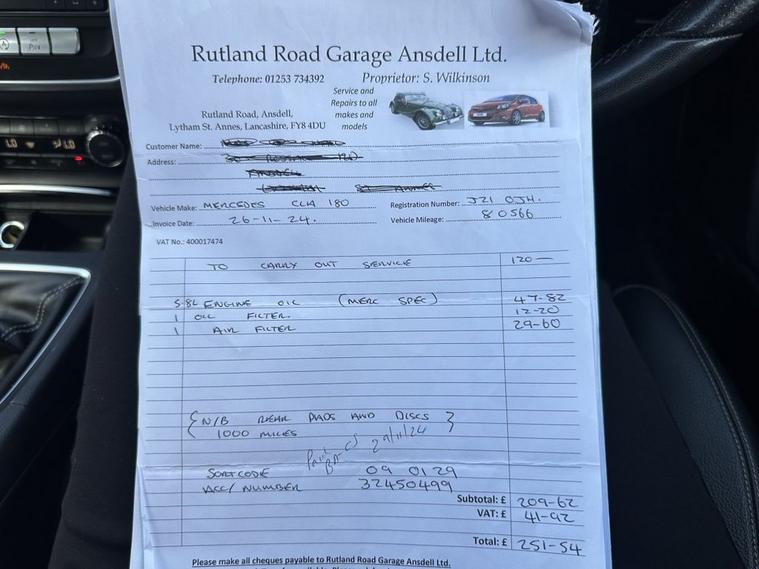 Rutland Road Garage Ansdell Ltd.
Telephone: 01253 734392 Proprietor: S. Wilkinson
Service and
Repairs to all
makes and
models
Rutland Road, Ansdell,
Lytham St. Annes, Lancashire, FY8 4DU
Customer Name:
Address:
Vehicle Make: MERCEDES CLA 180 Registration Number: J21 OJH.
Invoice Date: 26-11-24. Vehicle Mileage: 80566
VAT No.: 400017474
TO CARRY OUT SERVICE 120—
5.8L ENGINE OIL (MERC SPEC) 47-82
1 OIL FILTER. 12-20
1 AIR FILTER 29-60
{N/B REAR PADS AND DISCS}
1000 MILES
Paid 29/11/24
SORTCODE 09 0129
ACC/ NUMBER 32450499
Subtotal: £ 209-62
VAT: £ 41-92
Total: £ 251-54
Please make all cheques payable to Rutland Road Garage Ansdell Ltd.